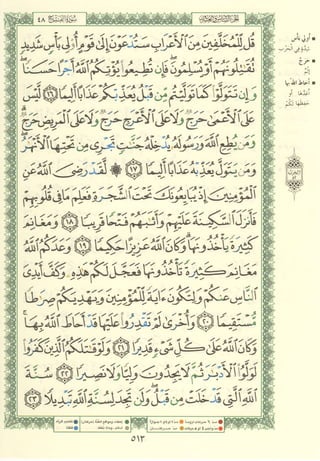 سورة الفتح ٤٨
قُل لِّلْمُخَلَّفِينَ مِنَ ٱلْأَعْرَابِ سَتُدْعَوْنَ إِلَىٰ قَوْمٍ أُو۟لِى بَأْسٍ شَدِيدٍ
تُقَٰتِلُونَهُمْ أَوْ يُسْلِمُونَ ۖ فَإِن تُطِيعُوا۟ يُؤْتِكُمُ ٱللَّهُ أَجْرًا حَسَنًا ۖ
وَإِن تَتَوَلَّوْا۟ كَمَا تَوَلَّيْتُم مِّن قَبْلُ يُعَذِّبْكُمْ عَذَابًا أَلِيمًا ١٦ لَّيْسَ
عَلَى ٱلْأَعْمَىٰ حَرَجٌ وَلَا عَلَى ٱلْأَعْرَجِ حَرَجٌ وَلَا عَلَى ٱلْمَرِيضِ حَرَجٌ ۗ
وَمَن يُطِعِ ٱللَّهَ وَرَسُولَهُۥ يُدْخِلْهُ جَنَّٰتٍ تَجْرِى مِن تَحْتِهَا ٱلْأَنْهَٰرُ ۖ
وَمَن يَتَوَلَّ يُعَذِّبْهُ عَذَابًا أَلِيمًا ١٧ ۞ لَّقَدْ رَضِىَ ٱللَّهُ عَنِ
ٱلْمُؤْمِنِينَ إِذْ يُبَايِعُونَكَ تَحْتَ ٱلشَّجَرَةِ فَعَلِمَ مَا فِى قُلُوبِهِمْ
فَأَنزَلَ ٱلسَّكِينَةَ عَلَيْهِمْ وَأَثَٰبَهُمْ فَتْحًا قَرِيبًا ١٨ وَمَغَانِمَ
كَثِيرَةً يَأْخُذُونَهَا ۗ وَكَانَ ٱللَّهُ عَزِيزًا حَكِيمًا ١٩ وَعَدَكُمُ ٱللَّهُ
مَغَانِمَ كَثِيرَةً تَأْخُذُونَهَا فَعَجَّلَ لَكُمْ هَٰذِهِۦ وَكَفَّ أَيْدِىَ
ٱلنَّاسِ عَنكُمْ وَلِتَكُونَ ءَايَةً لِّلْمُؤْمِنِينَ وَيَهْدِيَكُمْ صِرَٰطًا
مُّسْتَقِيمًا ٢٠ وَأُخْرَىٰ لَمْ تَقْدِرُوا۟ عَلَيْهَا قَدْ أَحَاطَ ٱللَّهُ بِهَا ۚ
وَكَانَ ٱللَّهُ عَلَىٰ كُلِّ شَىْءٍ قَدِيرًا ٢١ وَلَوْ قَٰتَلَكُمُ ٱلَّذِينَ كَفَرُوا۟
لَوَلَّوُا۟ ٱلْأَدْبَٰرَ ثُمَّ لَا يَجِدُونَ وَلِيًّا وَلَا نَصِيرًا ٢٢ سُنَّةَ
ٱللَّهِ ٱلَّتِى قَدْ خَلَتْ مِن قَبْلُ ۖ وَلَن تَجِدَ لِسُنَّةِ ٱللَّهِ تَبْدِيلًا ٢٣
٥١٣